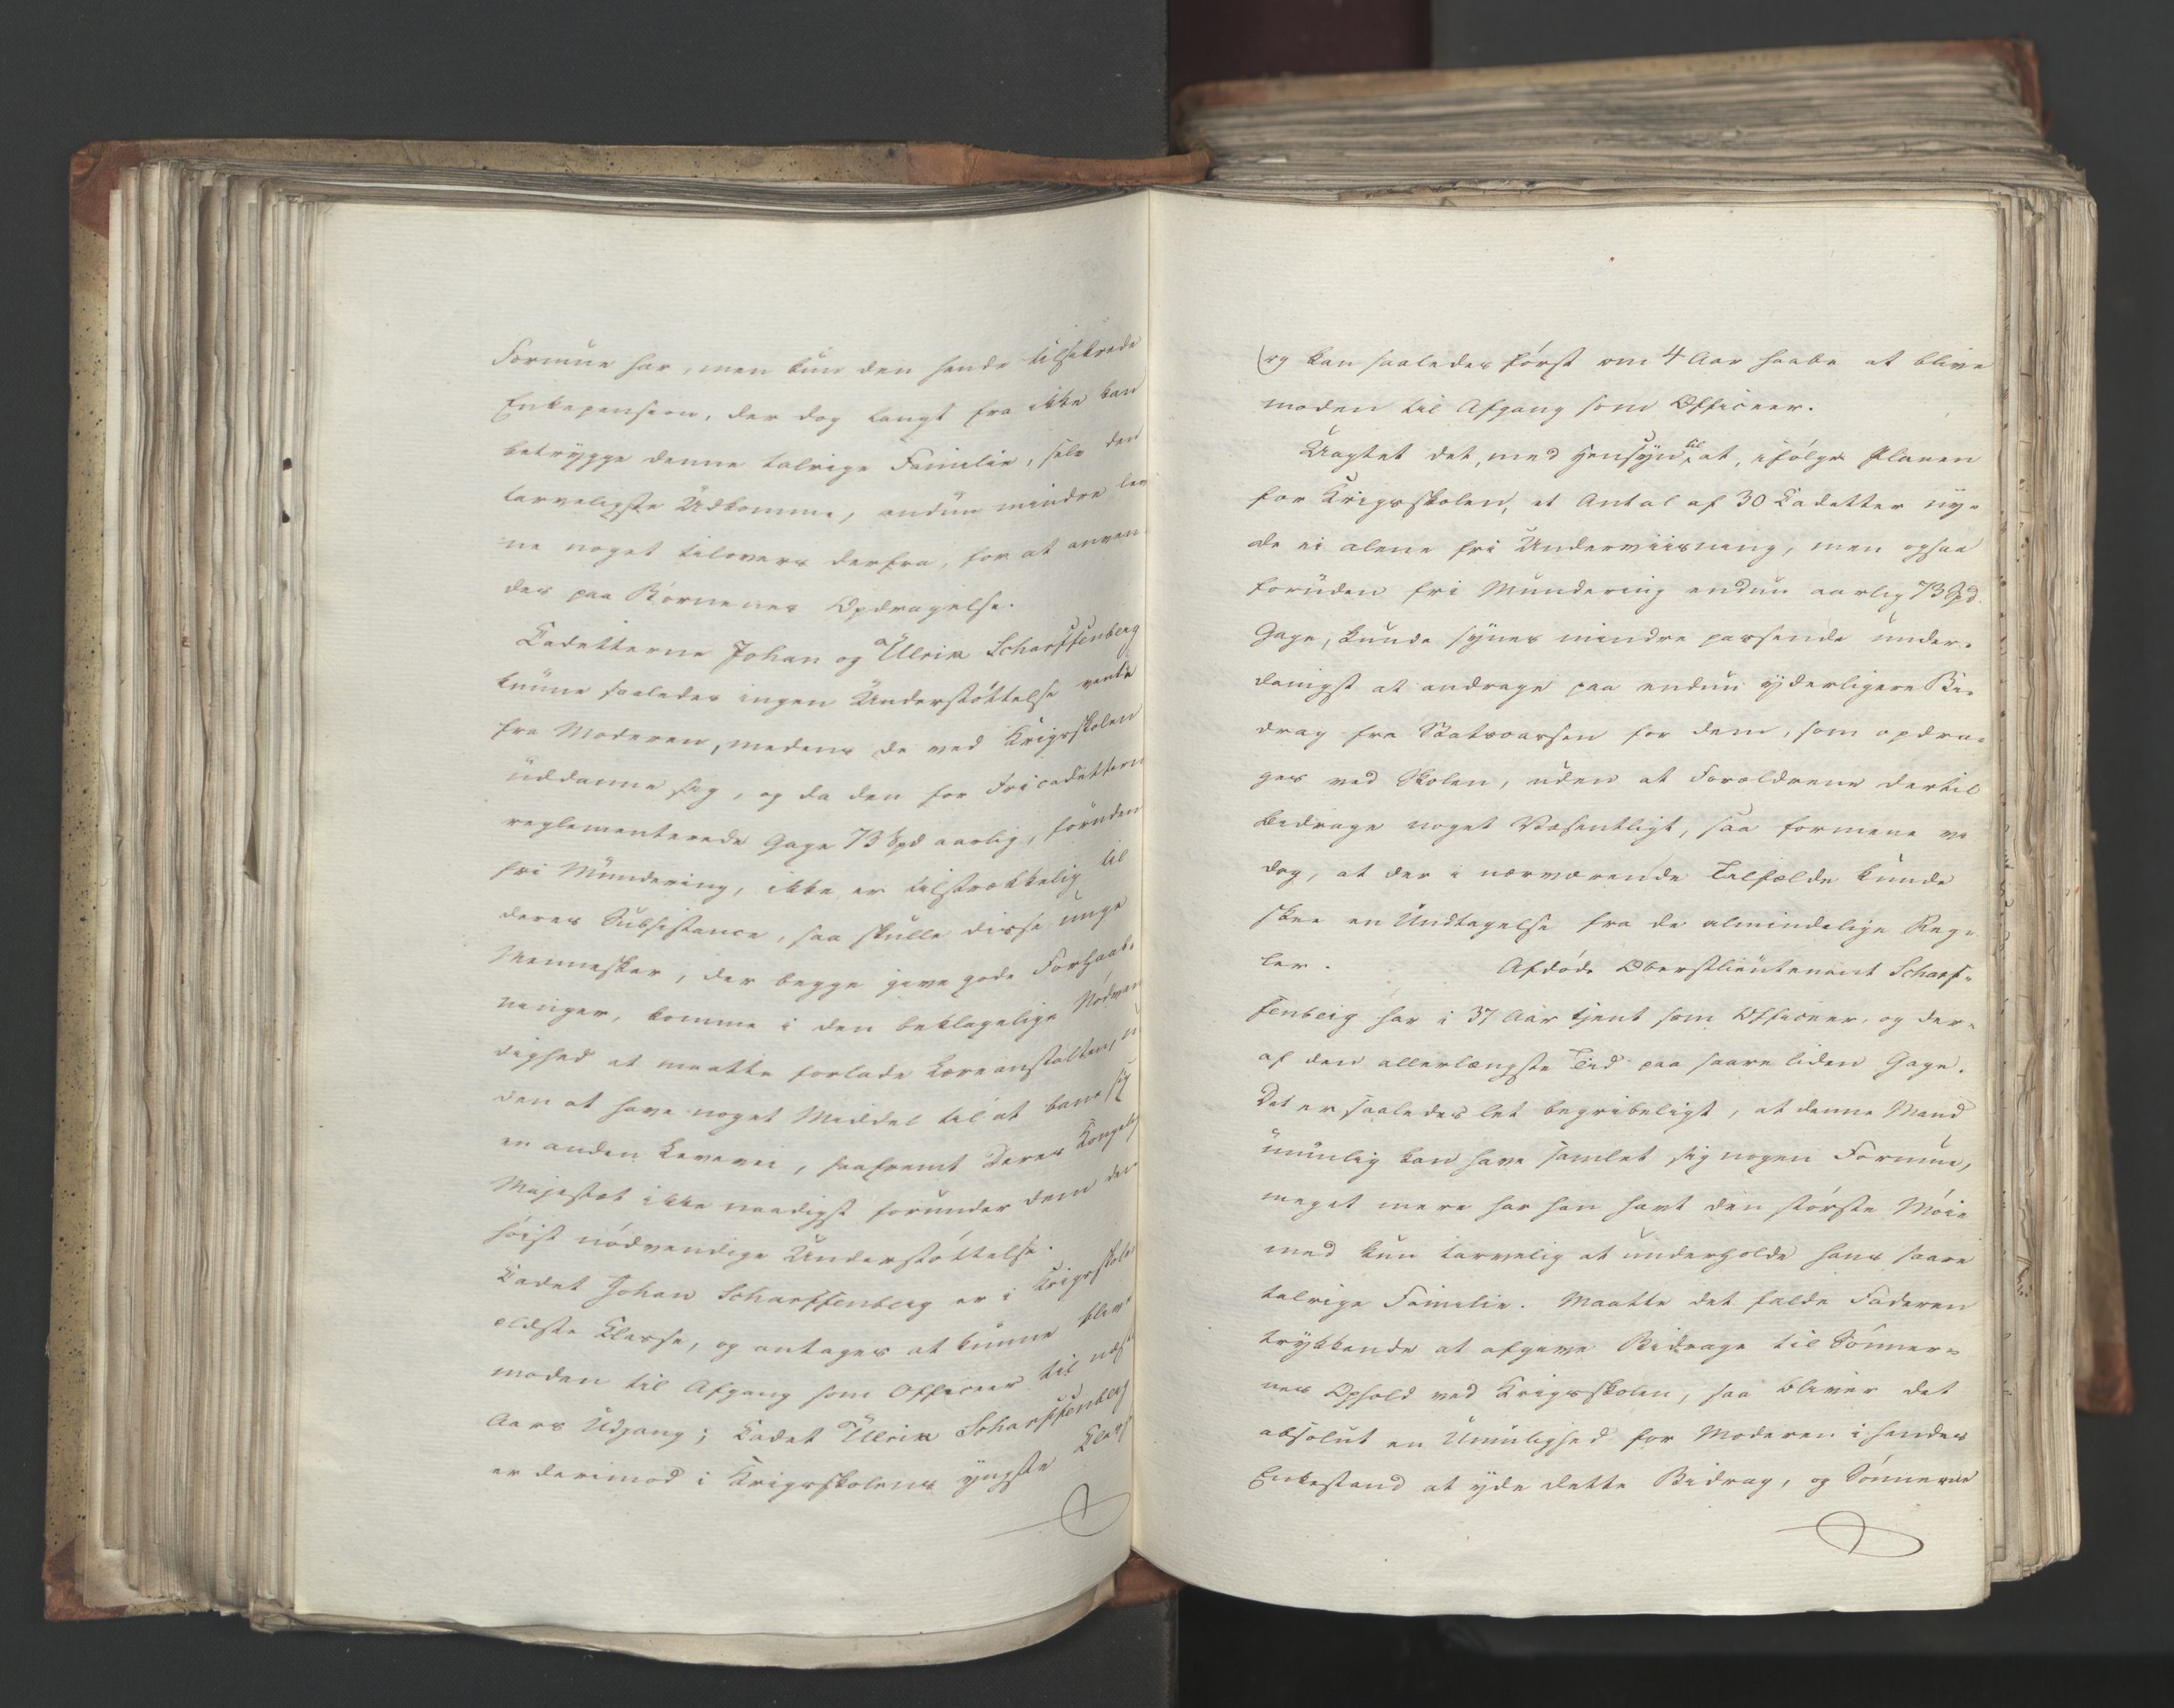 Formue har, men kun den hende tilsikrede
Enkepension, der dog langt fra ikke kan
betrygge denne talrige Familie, selv den
tarveligste Udkomme, endnu mindre lev
ne noget tilovers derfra, for at anven
des paa Børnenes Opdragelse.
Cadetterne Johan og Ulrik Scharffenberg
kunne saaledes ingen Understøttelse vente
fra Moderen, medens de ved Krigsskolen
uddanne sig, og da den for Fricadetten
reglementerede Gage 73 Spd aarlig, foruden
fri Mundering, ikke er tilstrækkelig til
deres Subsistance, saa skulle disse unge
Mennesker, der begge give gode Forhaab-
ninger, komme i den beklagelige Nødven
dighed at maatte forlade Læreanstalten, u
den at have noget Middel til at bane sig
en anden Levevei, saafremt Deres Kongelig
Majestæt ikke naadigst forunder dem den
høist nødvendige Understøttelse.
Cadet Johan Scharffenberg er i Krigsskole
ældste Classe, og antages at kunne blive
moden til Afgang som Officeer til næst
Aars Udgang; Cadet Ulrik Scharffenberg
er derimod i Krigsskolens yngste Class
og kan saaledes først om 4 Aar haabe at blive
moden til Afgang som Officeer.
Uagtet det, med Hensyn til, at, ifølge Planen
for Krigsskolen, et Antal af 30 Cadetter ny-
de ei alene fri Underviisning, men ogsaa
foruden fri Mundering endnu aarlig 73 Spd.
Gage, kunde synes mindre passende under-
danigst at andrage paa endnu yderligere Bi-
drag fra Statscassen for dem, som opdra-
ges ved Skolen, uden at Forældrene dertil
bidrage noget Væsentligt, saa formene vi
dog, at der i nærværende Tilfælde kunde
skee en Undtagelse fra de almindelige Reg-
ler. Afdøde Oberstlieutenant Scharf-
fenberg har i 37 Aar tjent som Officeer, og der-
af den allerlængste Tid paa saare liden Gage.
Det er saaledes let begribeligt, at denne Mand
umulig kan have samlet sig nogen Formue,
meget mere har han havt den største Møie
med kun tarvelig at underholde hans saare
talrige Familie. Maatte det falde Faderen
trykkende at afgive Bidrage til Sønner-
nes Ophold ved Krigsskolen, saa bliver det
absolut en Umulighed for Moderen i hendes
Enkestand at yde dette Bidrag, og Sønnerne